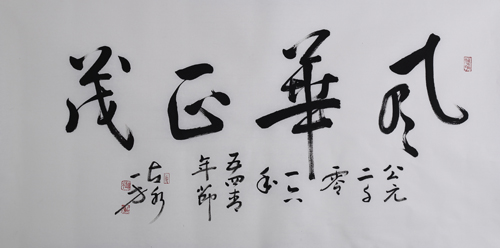 風華正茂
公元
二千
零
一六
年
五四青
年節